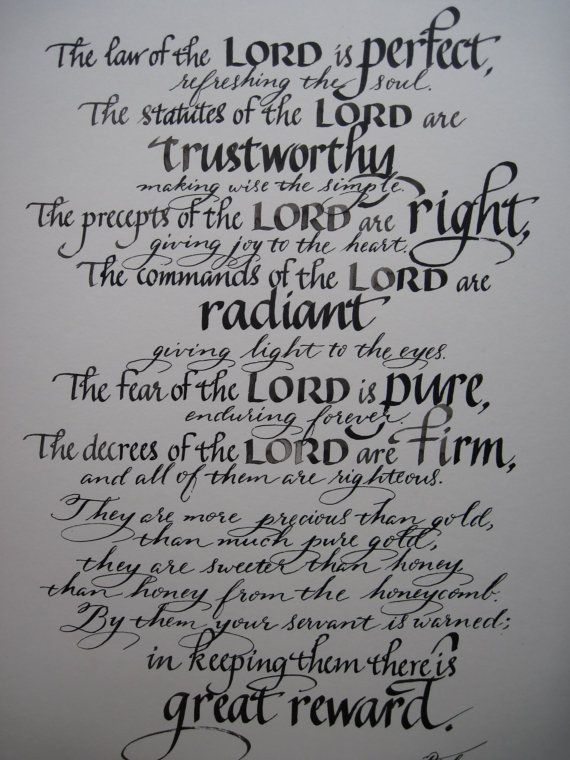 The law of the LORD is perfect,
refreshing the soul.
The statutes of the LORD are
trustworthy
making wise the simple.
The precepts of the LORD are right,
giving joy to the heart.
The commands of the LORD are
radiant
giving light to the eyes.
The fear of the LORD is pure,
enduring forever.
The decrees of the LORD are firm,
and all of them are righteous.
They are more precious than gold,
than much pure gold,
they are sweeter than honey
than honey from the honeycomb.
By them your servant is warned;
in keeping them there is
great reward.